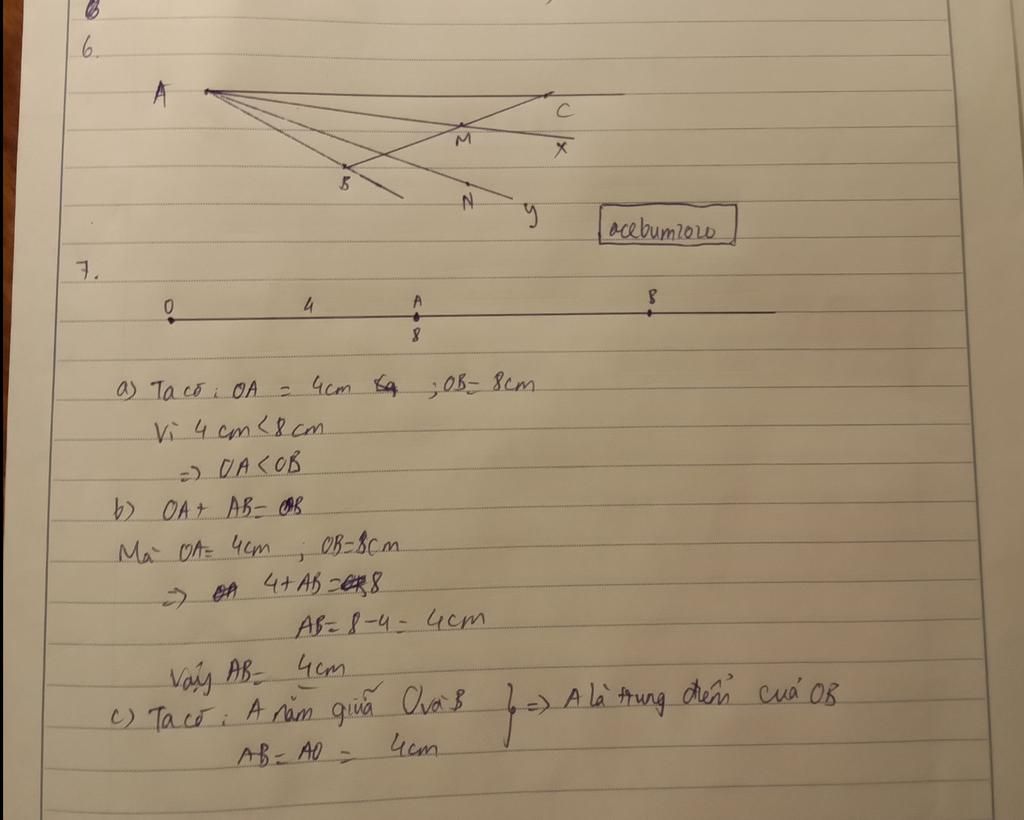 6.
A
C
M
x
B
N
y
acebum2020
7.
O 4 A B
8
a) Ta có: OA = 4cm ; OB = 8cm
Vì 4 cm < 8 cm
=> OA < OB
b) OA + AB = OB
Mà OA = 4cm ; OB = 8cm
=> 4 + AB = 8
AB = 8 - 4 = 4cm
Vậy AB = 4cm
c) Ta có: A nằm giữa O và B } => A là trung điểm của OB
AB = AO = 4cm